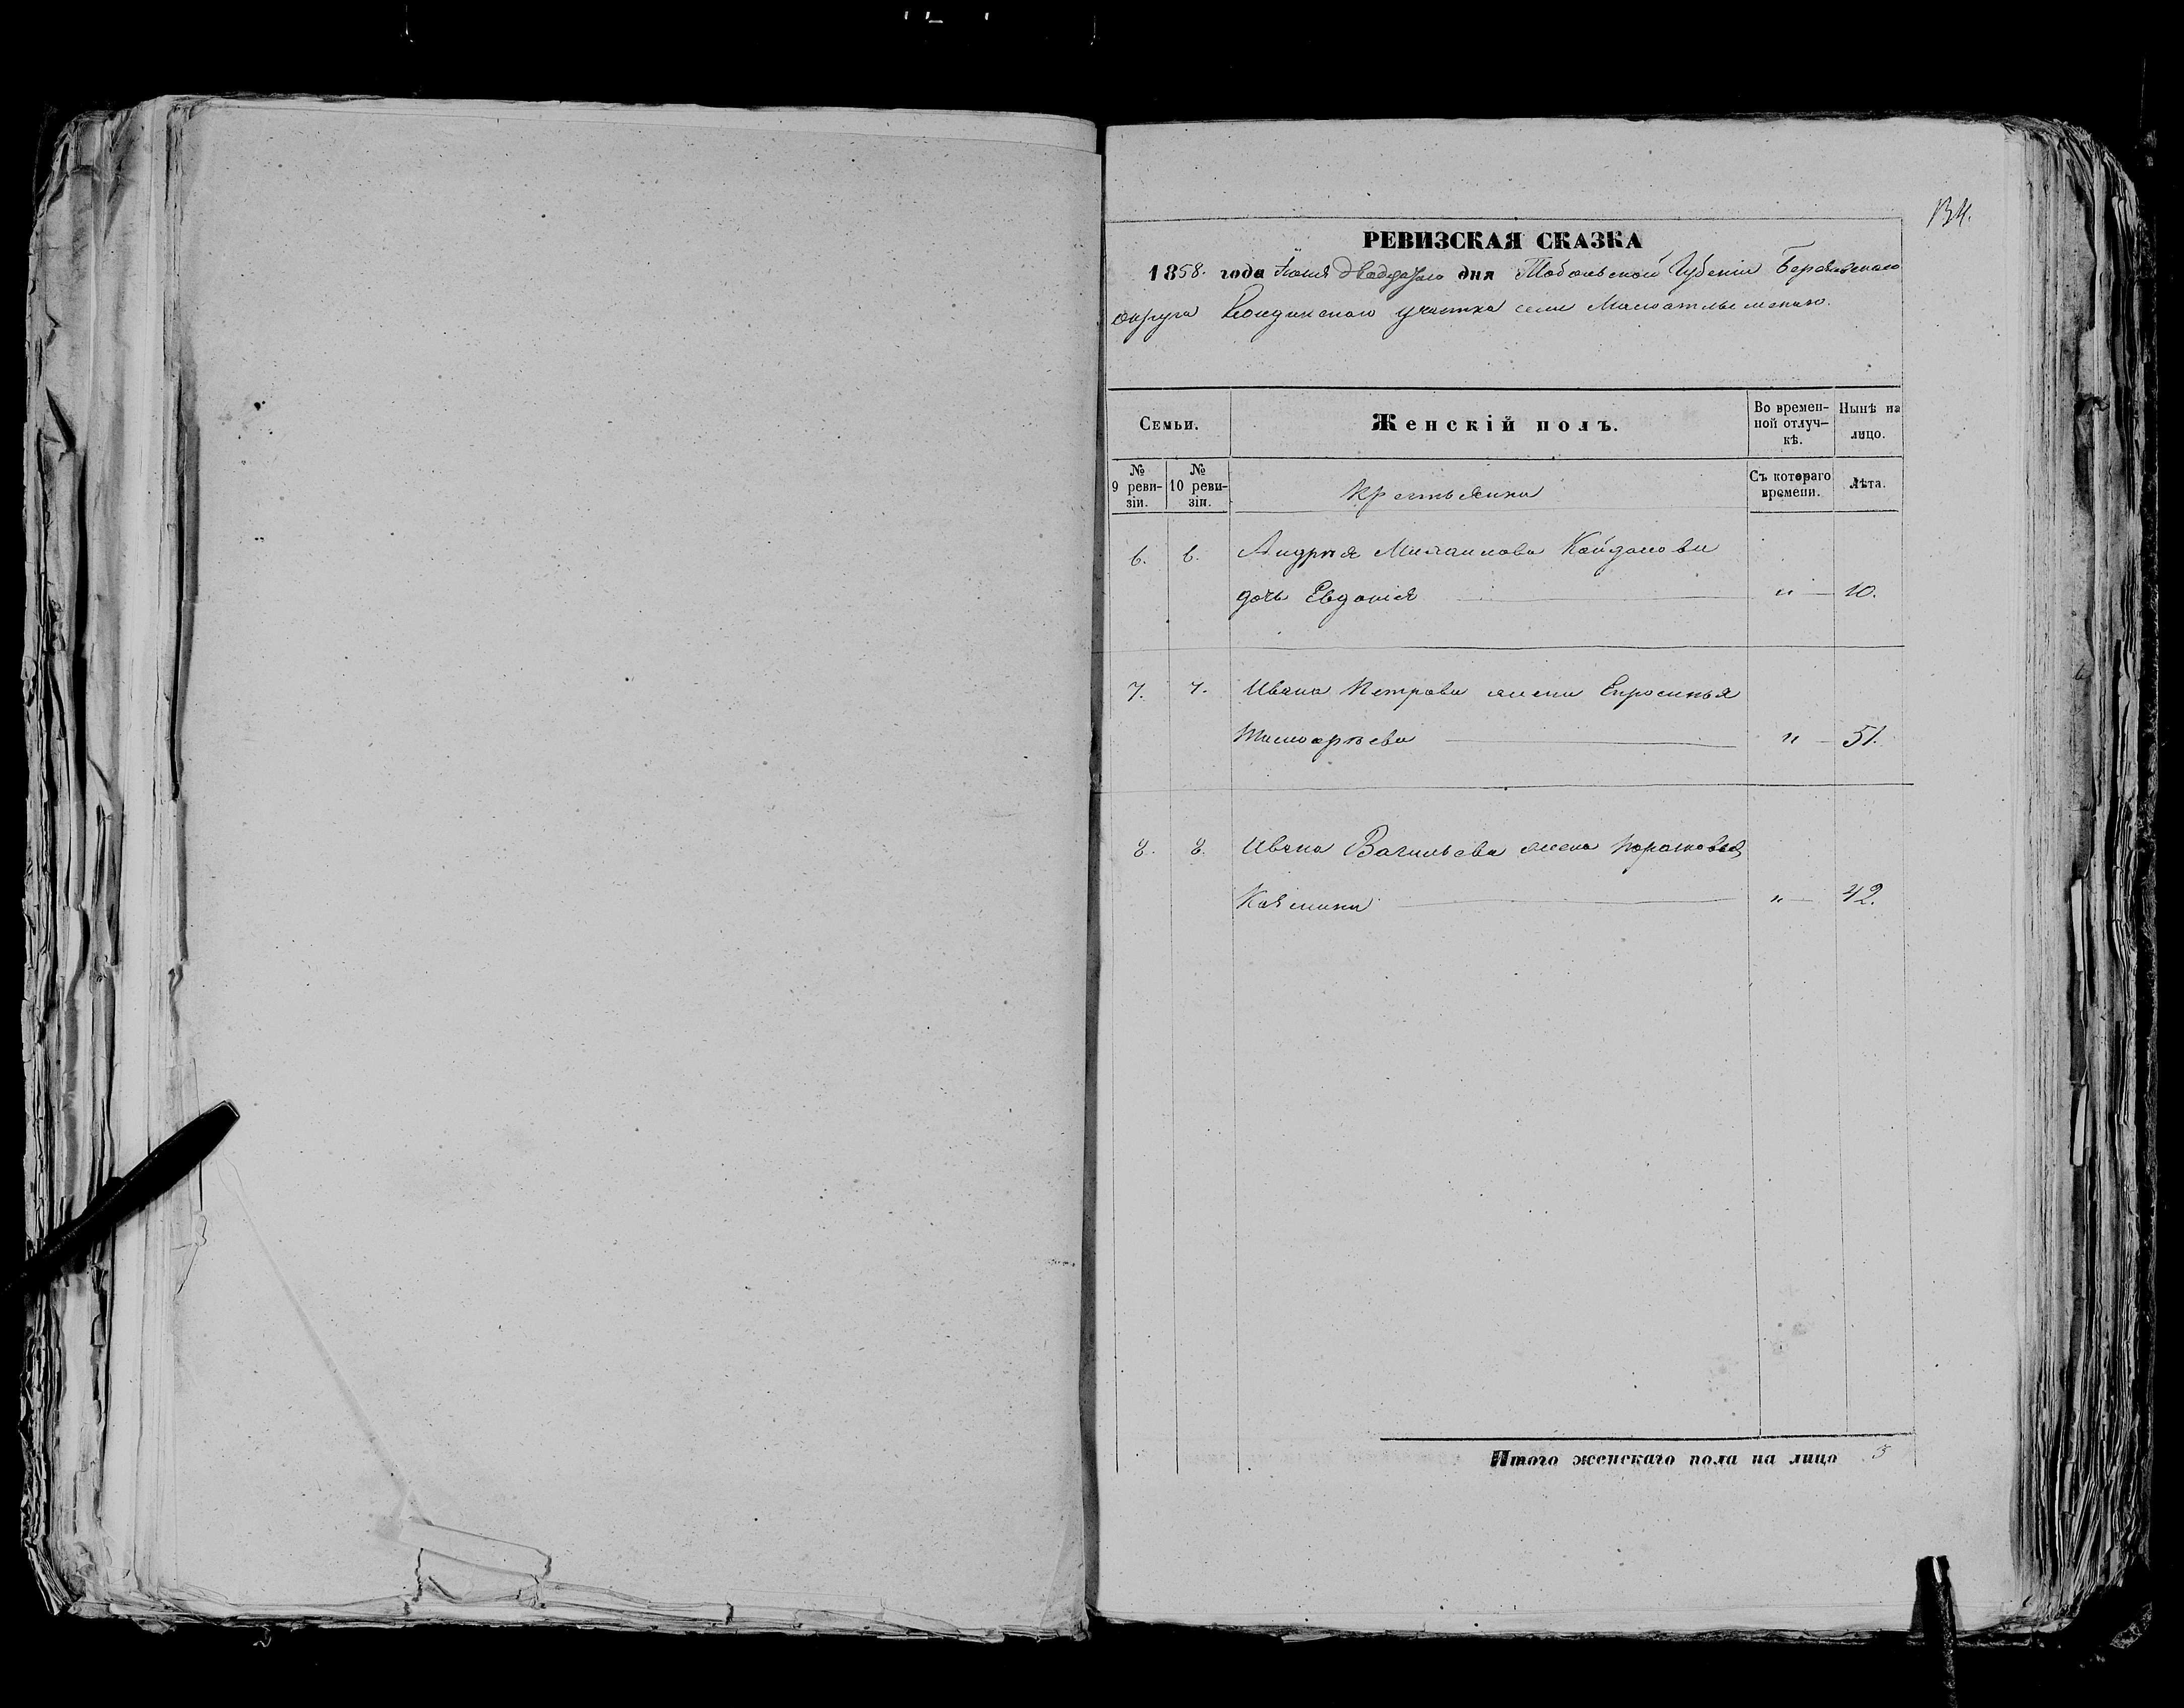 134.
РЕВИЗСКАЯ СКАЗКА
1858. года Іюня двадцатаго дня Тобольской Губерніи Березовскаго
округа Кондинскаго участка села Малоатлымскаго.
Семьи.
Женскій полъ.
Во времен-
ной отлуч-
кѣ.
Нынѣ на
лицо.
№
9 реви-
зіи.
№
10 реви-
зіи.
Крестьянки
Съ котораго
времени.
Лѣта.
6. 6. Андрѣя Михаилова Кайдалова
дочь Евдокія " 10.
7. 7. Ивана Петрова жена Епросинья
Тимофѣева " 51.
8. 8. Ивана Васильева жена
" 42.
Итого женскаго пола на лицо 3